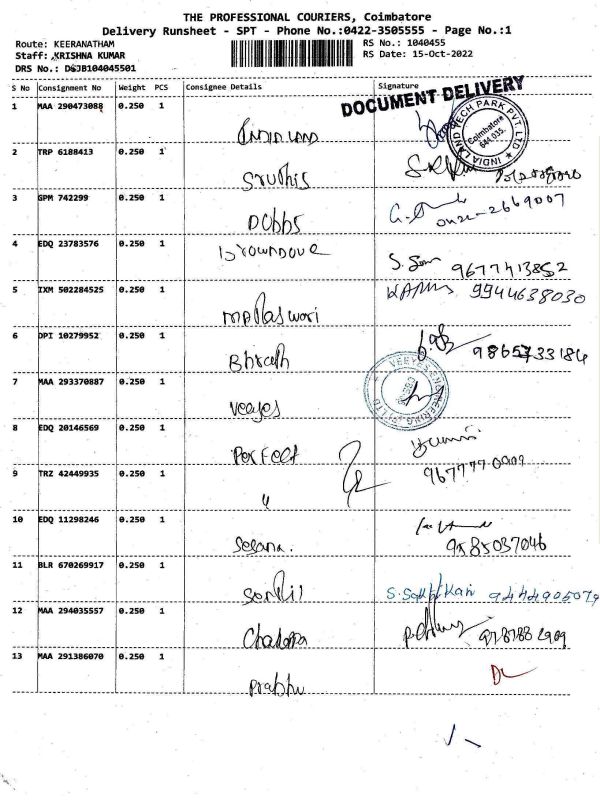 THE PROFESSIONAL COURIERS, Coimbatore
Delivery Runsheet - SPT - Phone No.:0422-3505555 - Page No.:1
Route: KEERANATHAM
RS No.: 1040455
Staff: KRISHNA KUMAR
RS Date: 15-Oct-2022
DRS No.: DSJB104045501
S No Consignment No Weight PCS Consignee Details Signature
DOCUMENT DELIVERY
1 MAA 290473088 0.250 1
INDIA LAND
INDIA LAND TECH PARK PVT. LTD
Coimbatore
641 035.
2 TRP 6188413 0.250 1
Sruthis
3 GPM 742299 0.250 1
Dobbs
0422-2669007
4 EDQ 23783576 0.250 1
browndove
S. Som 9677413852
5 IXM 502284525 0.250 1
9944638030
6 DPI 10279952 0.250 1
Bhrath
9865733184
7 MAA 293370887 0.250 1
Veeyes
VEEYES ENGINEERING P LTD
8 EDQ 20146569 0.250 1
Perfect
9 TRZ 42449935 0.250 1
"
967777 0909
10 EDQ 11298246 0.250 1
9585037046
11 BLR 670269917 0.250 1
Senthil
9444905079
12 MAA 294035557 0.250 1
13 MAA 291386070 0.250 1
Prabhu
DL